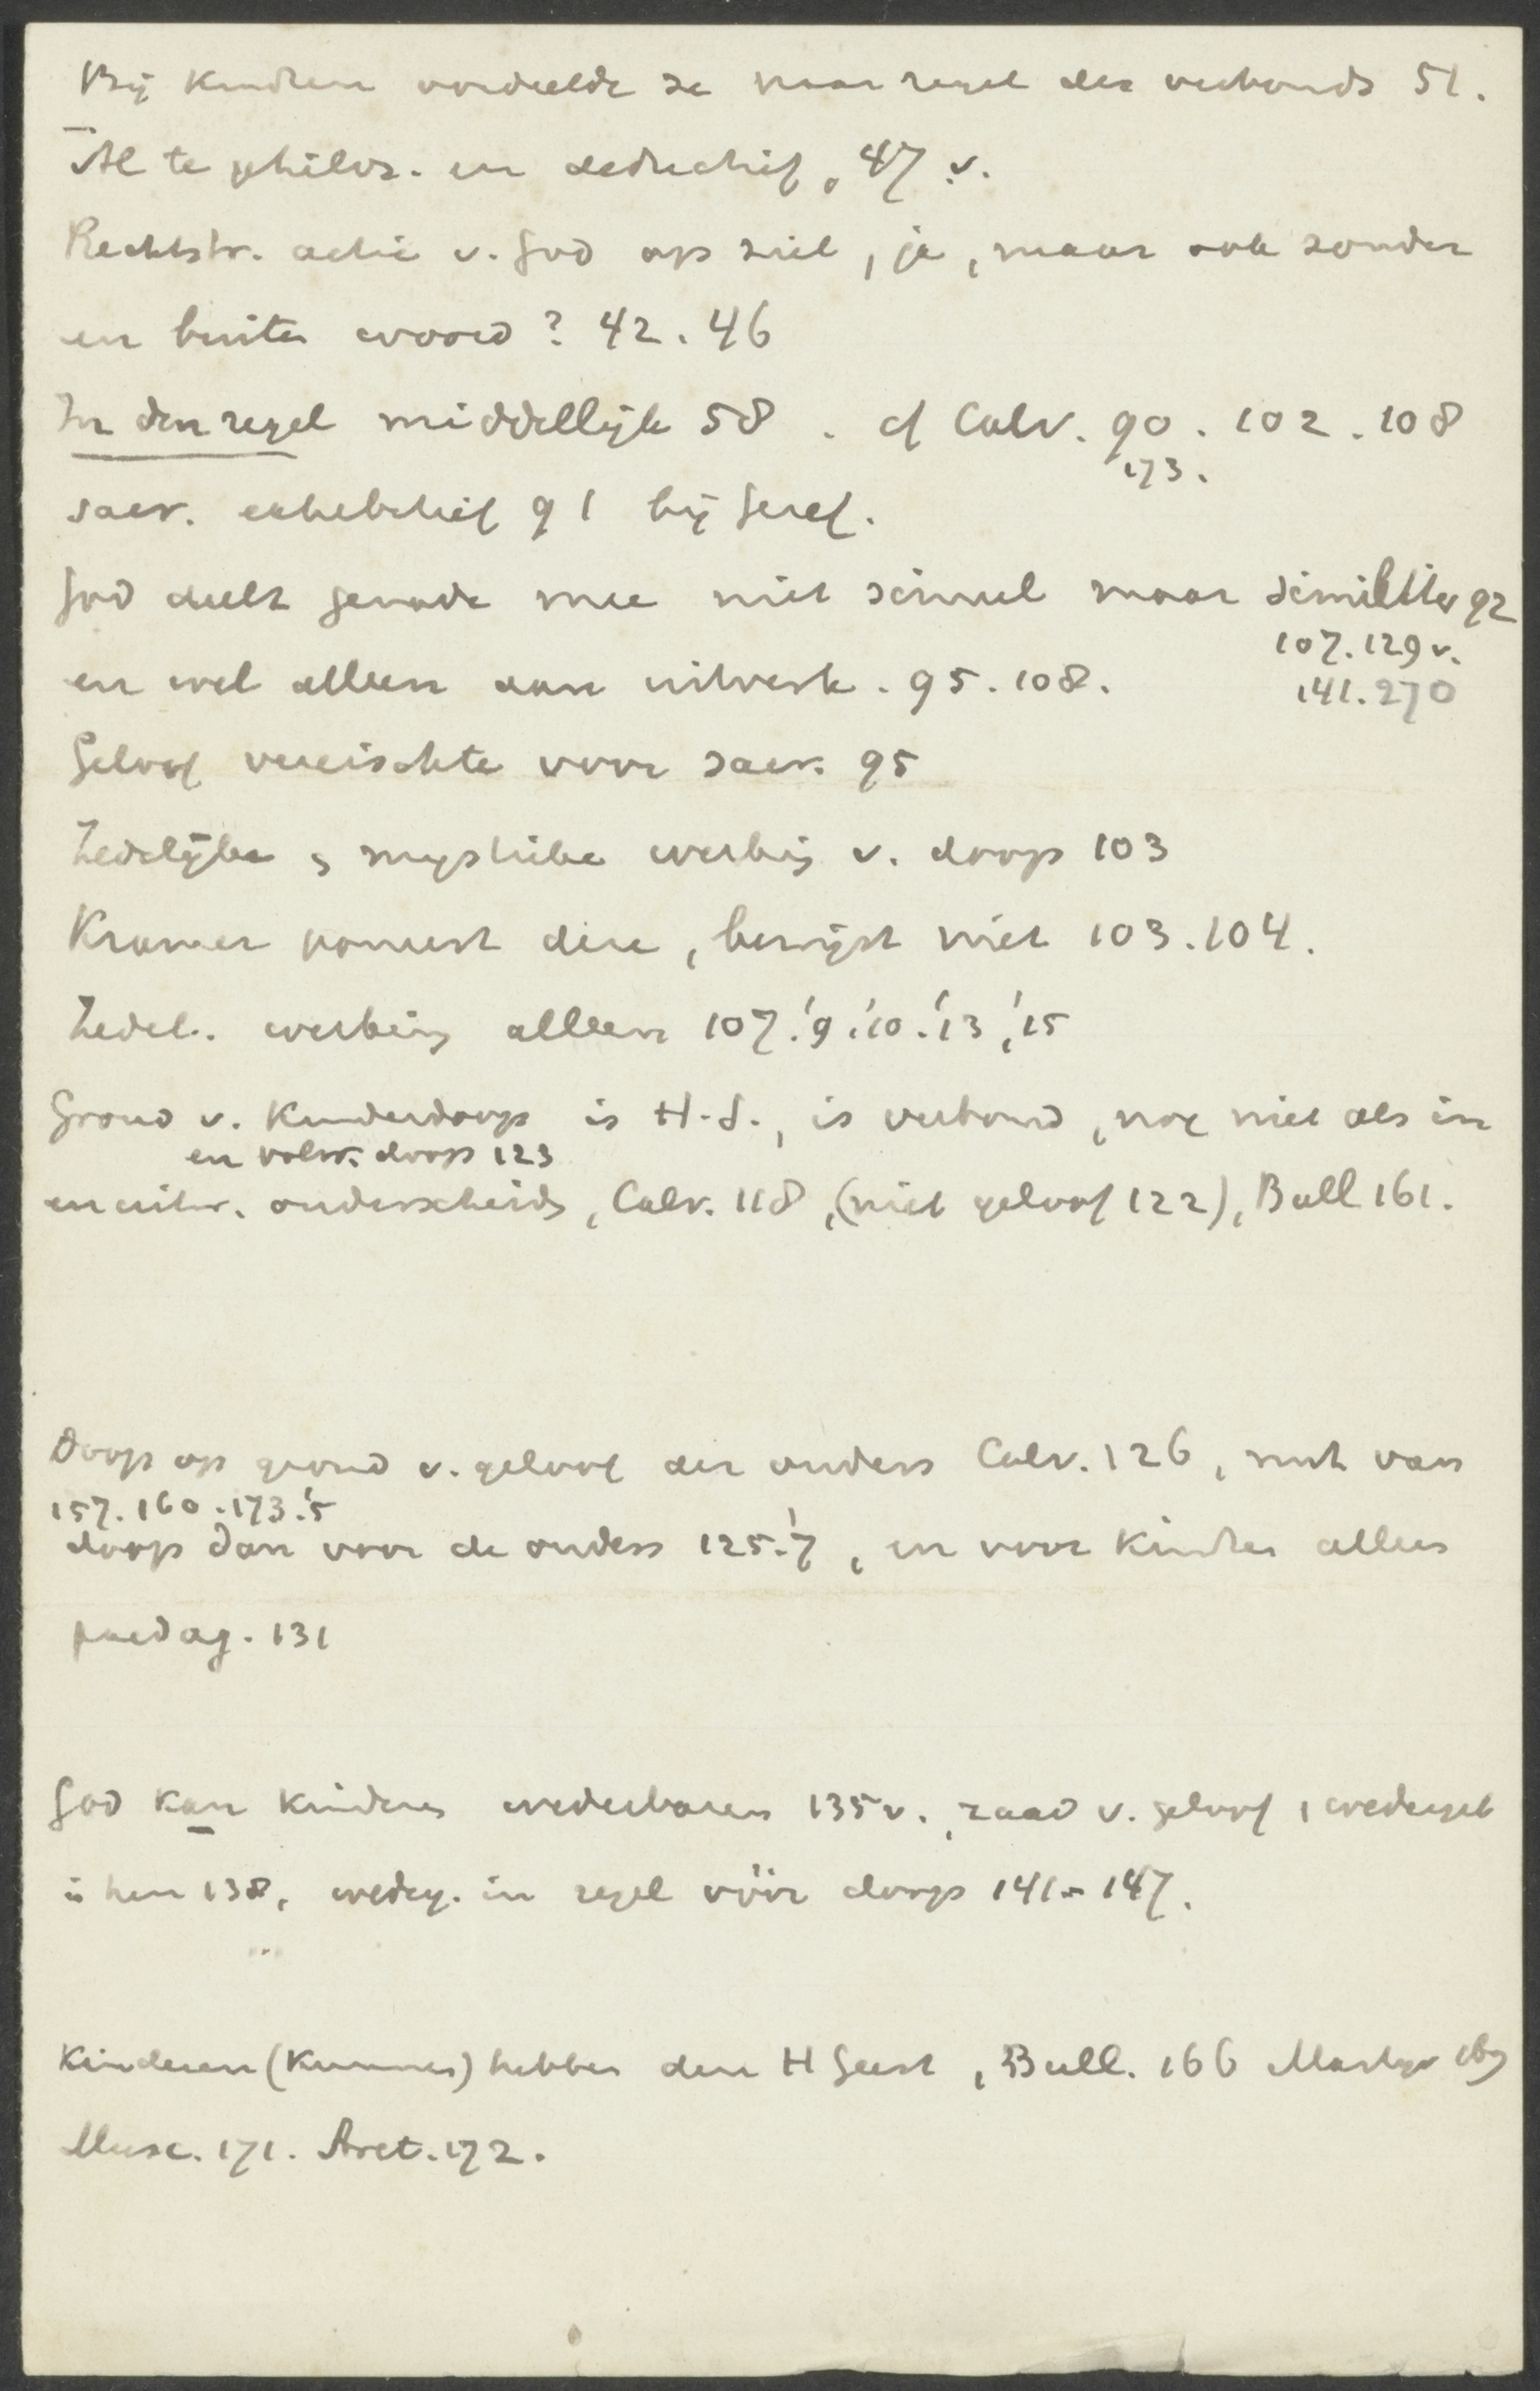 Bij kinderen oordeelde ze naar regel des verbonds 51.
Al te philos. en deductief, 47 v.
Rechtstr. actie v. God op ziel, ja, maar ook zonder
en buiten woord? 42. 46
In den regel middellijk 58. cf Calv. 90. 102. 108
173.
sacr. exhibitief 91 bij Geref.
God deelt genade mee niet simul maar similiter 92
107. 129 v.
en wel alleen aan uitverk. 95. 108.
141. 270
Geloof vereischte voor sacr. 95
Zedelijke, mystieke werking v. doop 103
Kramer poneert deze, bewijst niet 103. 104.
Zedel. werking alleen 107.'9.'10.'13.'15
Grond v. Kinderdoop is H.S., is verbond, nog niet als in
en volw. doop 123
en uitw. onderscheiden, Calv. 118, (niet geloof 122), Bull 161.
Doop op grond v. geloof der ouders Calv. 126, nut van
157. 160. 173.'5
doop dan voor de ouders 125.'7, en voor kinderen alleen
paedag. 131
God kan kinderen wederbaren 135 v., zaad v. geloof, wedergeb
in hen 138, wederg. in regel vóór doop 141-147.
Kinderen (kunnen) hebben den H Geest, Bull. 166 Martyr 169
Musc. 171. Aret. 172.